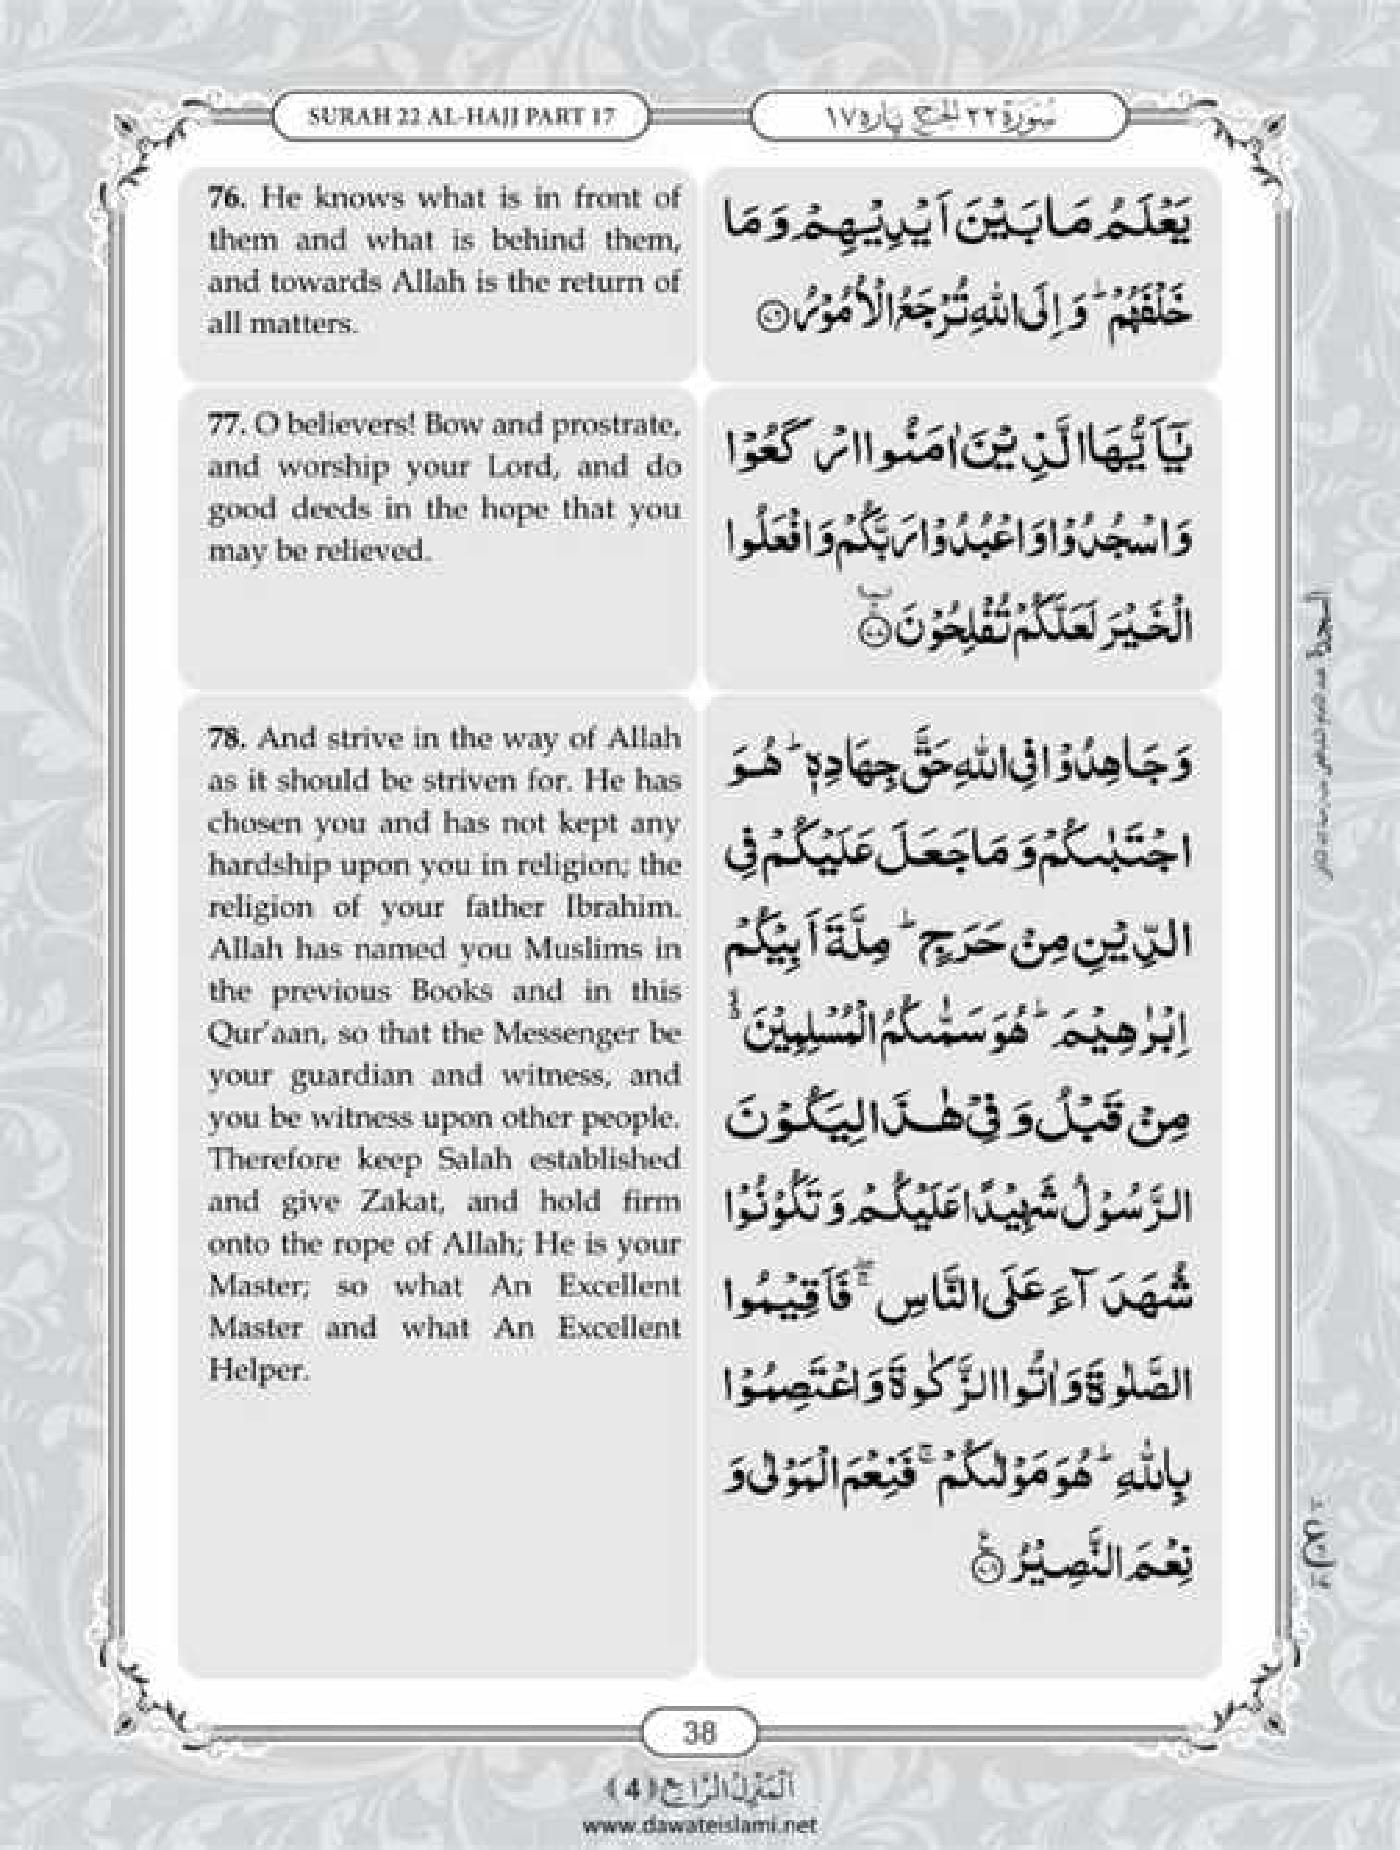 SURAH 22 AL-HAJJ PART 17
سُوْرَةُ ٢٢ الحج پاره ١٧
76. He knows what is in front of
them and what is behind them,
and towards Allah is the return of
all matters.
یَعْلَمُ مَا بَیْنَ اَیْدِیْهِمْ وَ مَا
خَلْفَهُمْ ؕ وَ اِلَی اللّٰهِ تُرْجَعُ الْاُمُوْرُ ﴿۷۶﴾
77. O believers! Bow and prostrate,
and worship your Lord, and do
good deeds in the hope that you
may be relieved.
یٰۤاَیُّهَا الَّذِیْنَ اٰمَنُوا ارْكَعُوْا
وَ اسْجُدُوْا وَ اعْبُدُوْا رَبَّكُمْ وَ افْعَلُوا
الْخَیْرَ لَعَلَّكُمْ تُفْلِحُوْنَ ﴿۷۷﴾
78. And strive in the way of Allah
as it should be striven for. He has
chosen you and has not kept any
hardship upon you in religion; the
religion of your father Ibrahim.
Allah has named you Muslims in
the previous Books and in this
Qur’aan, so that the Messenger be
your guardian and witness, and
you be witness upon other people.
Therefore keep Salah established
and give Zakat, and hold firm
onto the rope of Allah; He is your
Master; so what An Excellent
Master and what An Excellent
Helper.
وَ جَاهِدُوْا فِی اللّٰهِ حَقَّ جِهَادِهٖ ؕ هُوَ
اجْتَبٰىكُمْ وَ مَا جَعَلَ عَلَیْكُمْ فِی
الدِّیْنِ مِنْ حَرَجٍ ؕ مِلَّةَ اَبِیْكُمْ
اِبْرٰهِیْمَ ؕ هُوَ سَمّٰىكُمُ الْمُسْلِمِیْنَ
مِنْ قَبْلُ وَ فِیْ هٰذَا لِیَكُوْنَ
الرَّسُوْلُ شَهِیْدًا عَلَیْكُمْ وَ تَكُوْنُوْا
شُهَدَآءَ عَلَی النَّاسِ ۖۚ فَاَقِیْمُوا
الصَّلٰوةَ وَ اٰتُوا الزَّكٰوةَ وَ اعْتَصِمُوْا
بِاللّٰهِ ؕ هُوَ مَوْلٰىكُمْ ۚ فَنِعْمَ الْمَوْلٰی وَ
نِعْمَ النَّصِیْرُ ﴿۷۸﴾
السجدة
38
اَلْمَنْزِلُ الرَّابِع ﴿4﴾
www.dawateislami.net